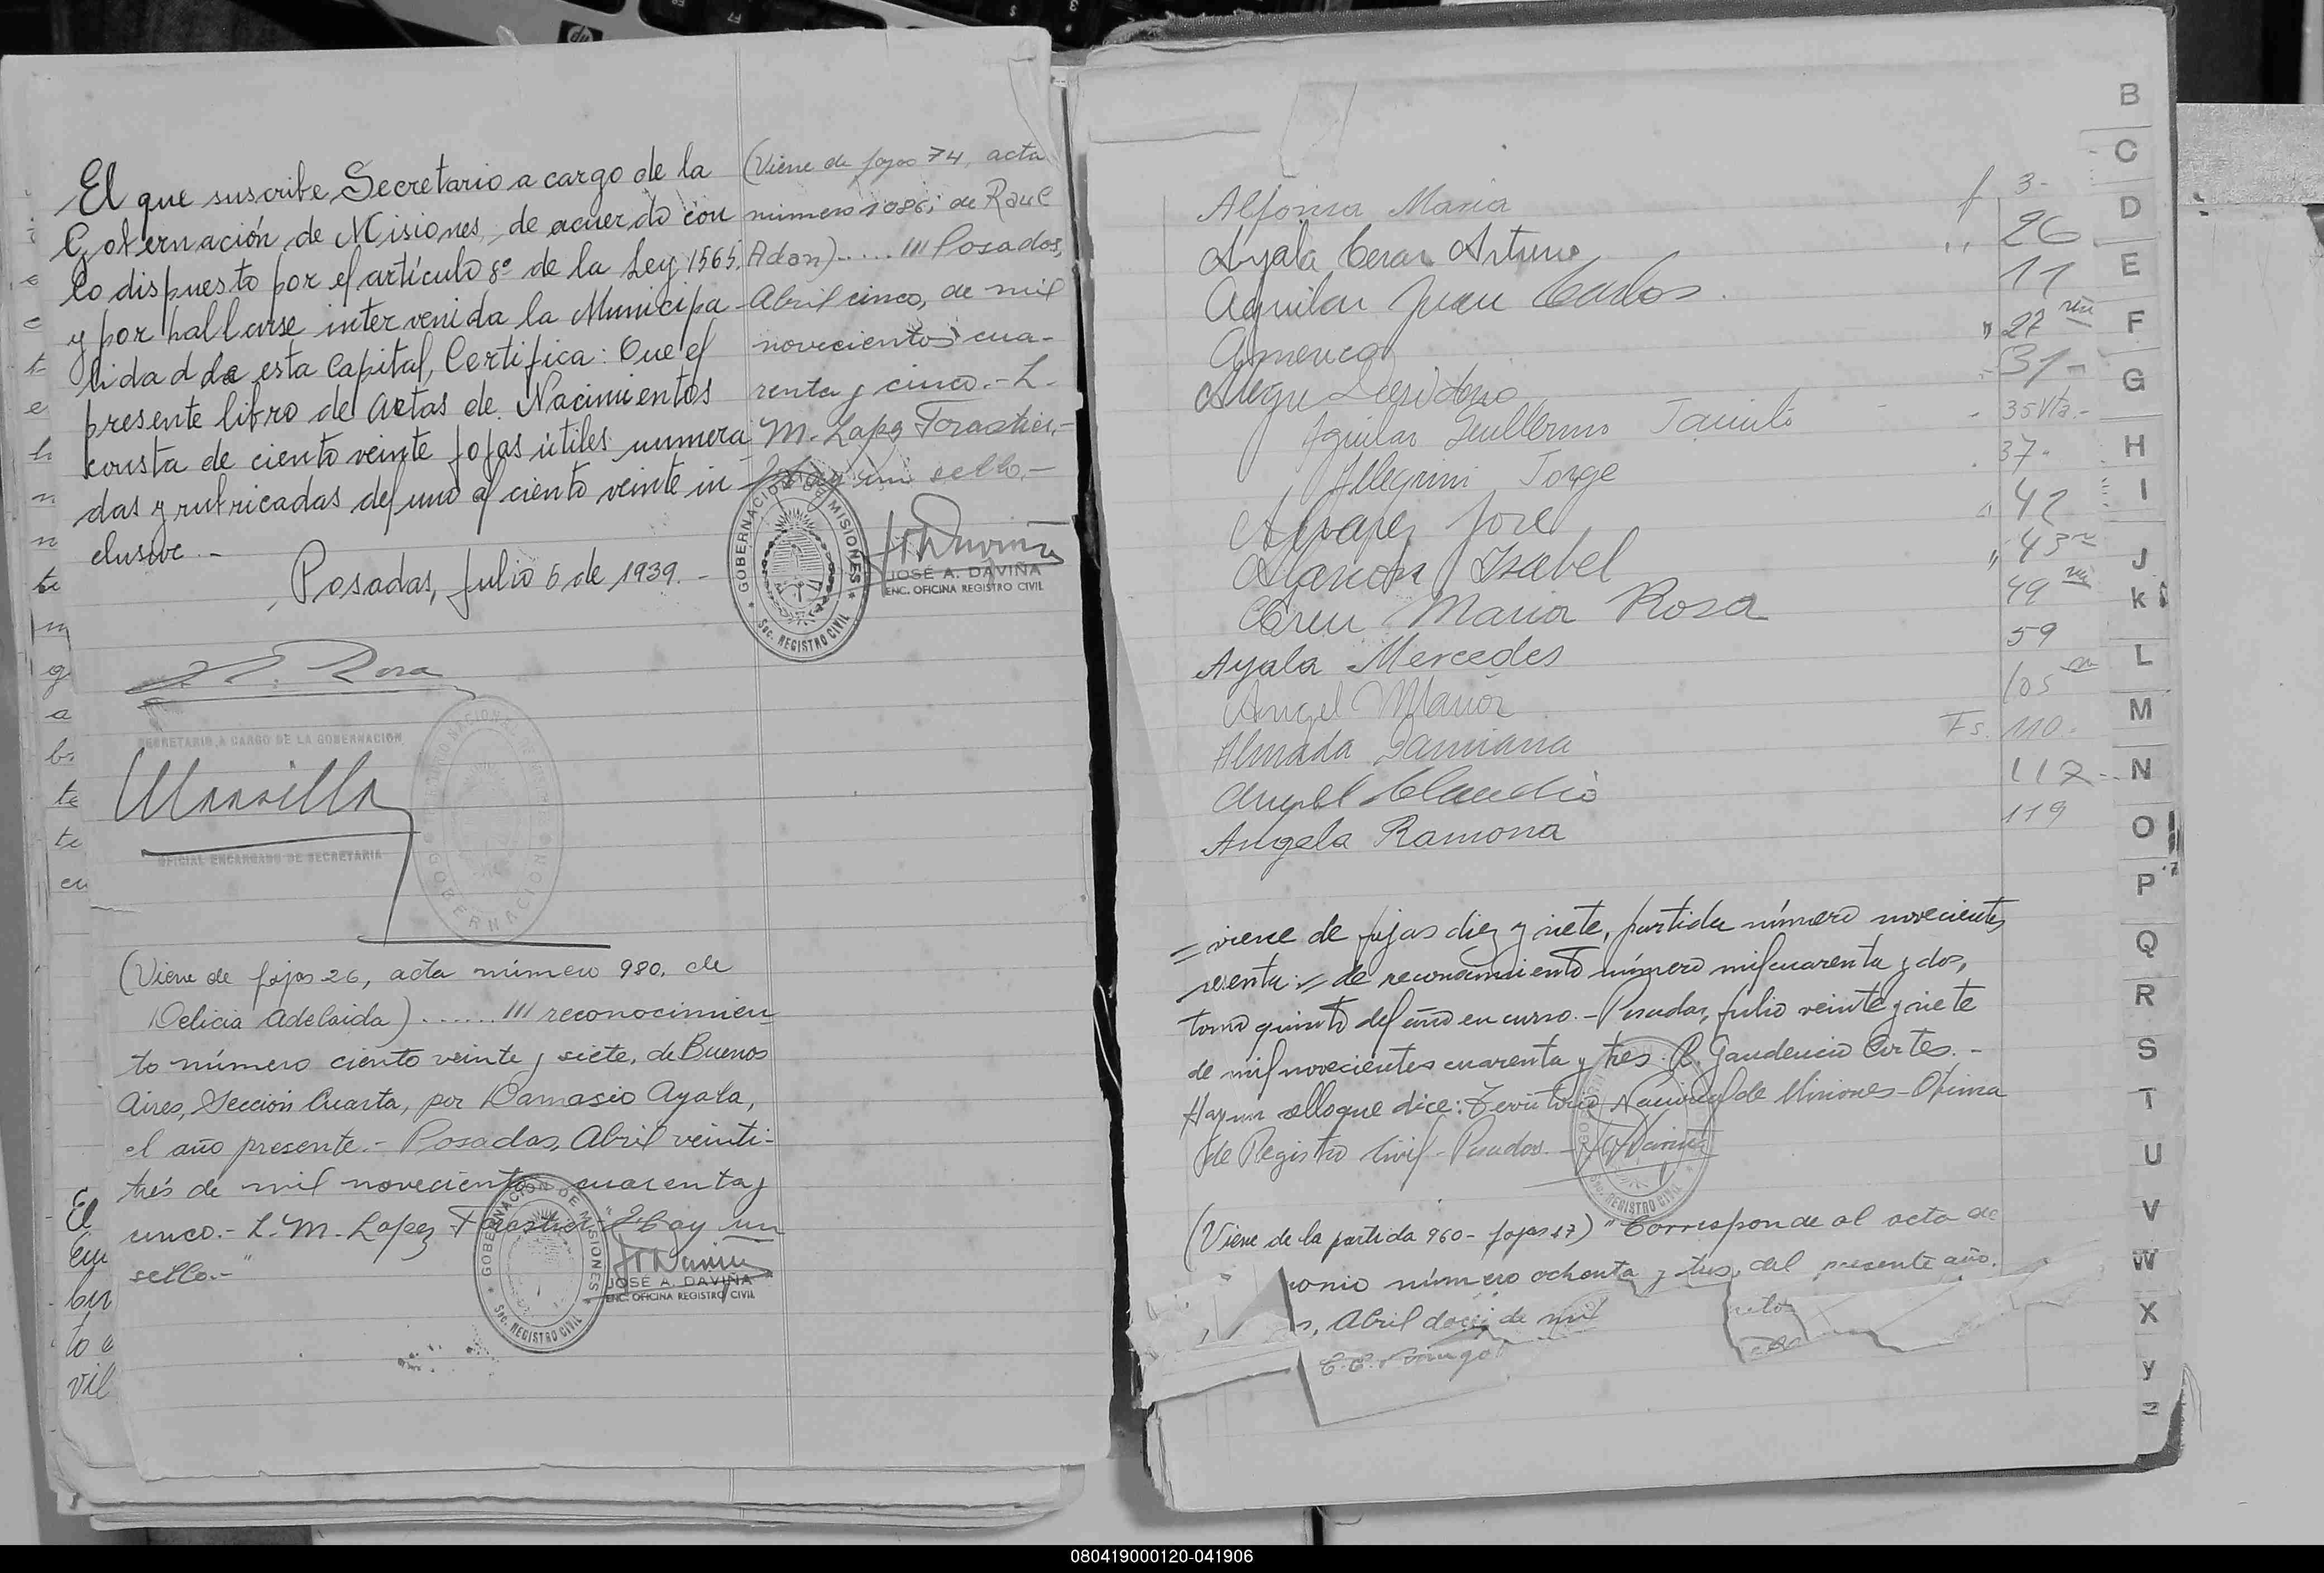 El que suscribe, Secretario a cargo de la
Gobernación de Misiones, de acuerdo con
lo dispuesto por el artículo 8º de la Ley 1565,
y por hallarse intervenida la Municipa
lidad de esta Capital, Certifica: Que el
presente libro de Actas de Nacimientos
consta de ciento veinte fojas útiles numera
das y rubricadas del uno al ciento veinte in
clusive.-
Posadas, Julio 6 de 1939.-
SECRETARIO A CARGO DE LA GOBERNACION
OFICIAL ENCARGADO DE SECRETARIA
(Viene de fojas 26, acta número 980, de
Delicia Adelaida) ...... /// reconocimien
to número ciento veinte y siete, de Buenos
Aires, Sección Cuarta, por Damasio Ayala,
el año presente.- Posadas, Abril veinti-
trés de mil novecientos cuarenta y
cinco.- L. M. Lopez Forastier.- Hay un
sello.-"
GOBERNACION DE MISIONES
Sec. REGISTRO CIVIL
JOSÉ A. DAVIÑA
ENC. OFICINA REGISTRO CIVIL
(Viene de fojas 74, acta
número 1086, de Raul
Adan)..... /// Posadas,
Abril cinco, de mil
novecientos cua-
renta y cinco.- L.
M. Lopez Forastier.-
Hay un sello.-
GOBERNACION DE MISIONES
Sec. REGISTRO CIVIL
JOSÉ A. DAVIÑA
ENC. OFICINA REGISTRO CIVIL
Alfonsa Maria f 3-
Ayala Cesar Arturo " 26
Aguilar Juan Carlos. 11
America " 27
31-
Aguilar Guillermo Jacinto 35 Vta.-
Allegrini Jorge 37-
Alvarez José 42
Isabel " 43
Maria Rosa 49
Ayala Mercedes 59
Angel Maria 105
Almada Damiana Fs. 110.
Angel Claudio 117-
Angela Ramona 119
= viene de fojas diez y siete, partida número novecientos
sesenta:= de reconocimiento número mil cuarenta y dos,
tomo quinto del año en curso.- Posadas, julio veinte y siete
de mil novecientos cuarenta y tres. R. Gaudencio Cortes.-
Hay un sello que dice: Territorio Nacional de Misiones - Oficina
de Registro Civil - Posadas.-
REGISTRO CIVIL
(Viene de la partida 960- fojas 17) "Corresponde al acta de
monio número ochenta y tres, del presente año.
s, Abril doce de mil
B
C
D
E
F
G
H
I
J
K
L
M
N
O
P
Q
R
S
T
U
V
W
X
Y
Z
080419000120-041906